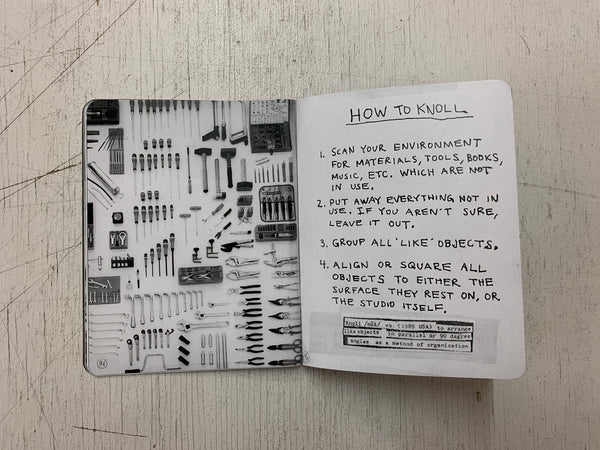 HOW TO KNOLL
1. SCAN YOUR ENVIRONMENT
FOR MATERIALS, TOOLS, BOOKS,
MUSIC, ETC. WHICH ARE NOT
IN USE.
2. PUT AWAY EVERYTHING NOT IN
USE. IF YOU AREN'T SURE,
LEAVE IT OUT.
3. GROUP ALL 'LIKE' OBJECTS.
4. ALIGN OR SQUARE ALL
OBJECTS TO EITHER THE
SURFACE THEY REST ON, OR
THE STUDIO ITSELF.
Knoll /nōl/ vb. (1989 USA) to arrange
like objects in parallel or 90 degree
angles as a method of organization
14